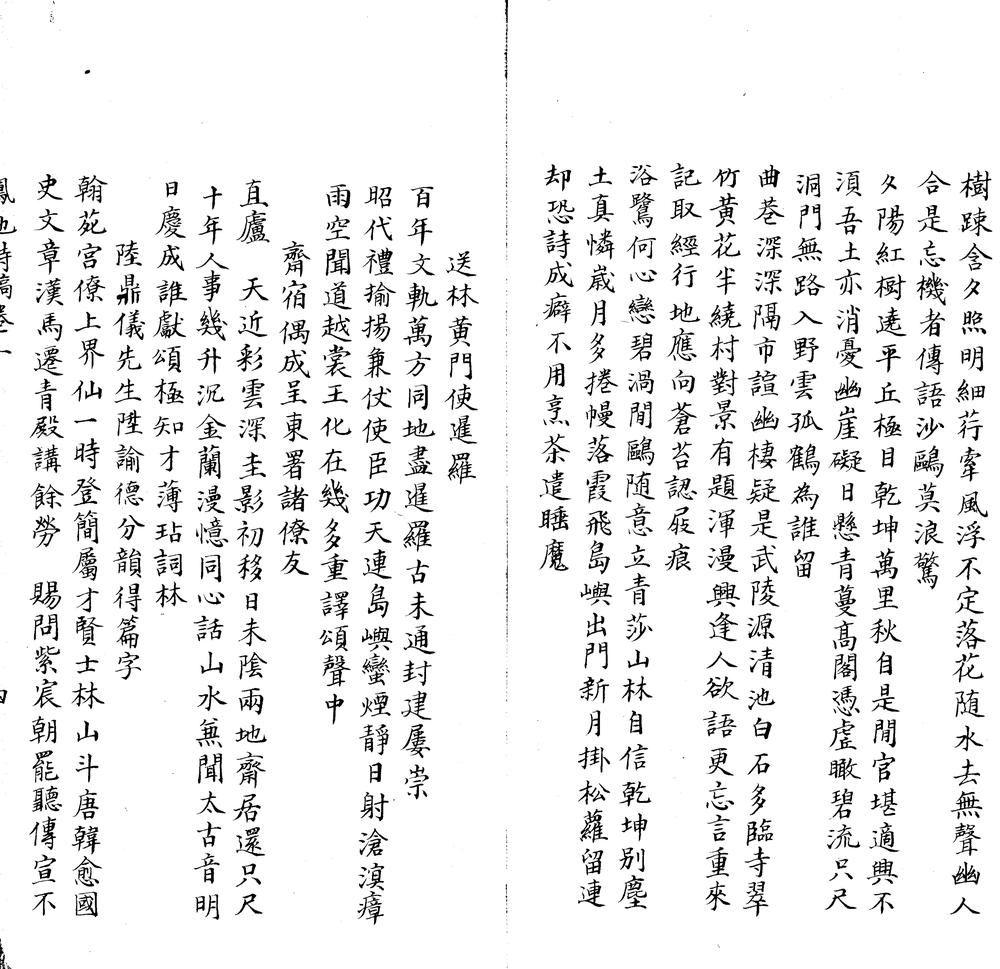 樹踈含夕照明細荇牽風浮不定落花随水去無聲幽人
合是忘機者傳語沙鷗莫浪驚
夕陽紅樹遶平丘極目乾坤萬里秋自是閒官堪適興不
湏吾土亦消憂幽崖礙日懸青蔓髙閣憑虚瞰碧流只尺
洞門無路入野雲孤鶴為誰留
曲巷深深隔市諠幽棲疑是武陵源清池白石多臨寺翠
竹黄花半繞村對景有題渾漫興逢人欲語更忘言重來
記取經行地應向蒼苔認屐痕
浴鷺何心戀碧渦閒鷗随意立青莎山林自信乾坤别塵
土真憐歳月多捲幔落霞飛島嶼出門新月掛松蘿留連
却恐詩成癖不用烹茶遣睡魔
送林黄門使暹羅
百年文軌萬方同地盡暹羅古未通封建屢崇
昭代禮揄揚兼仗使臣功天連島嶼蠻煙靜日射滄溟瘴
雨空聞道越裳王化在幾多重譯頌聲中
齋宿偶成呈東署諸僚友
直廬 天近彩雲深圭影初移日未陰兩地齋居還只尺
十年人事幾升沉金蘭漫憶同心話山水無聞太古音明
日慶成誰獻頌極知才薄玷詞林
陸鼎儀先生陞諭德分韻得篇字
翰苑宫僚上界仙一時登簡屬才賢士林山斗唐韓愈國
史文章漢馬遷青殿講餘勞 賜問紫宸朝罷聽傳宣不